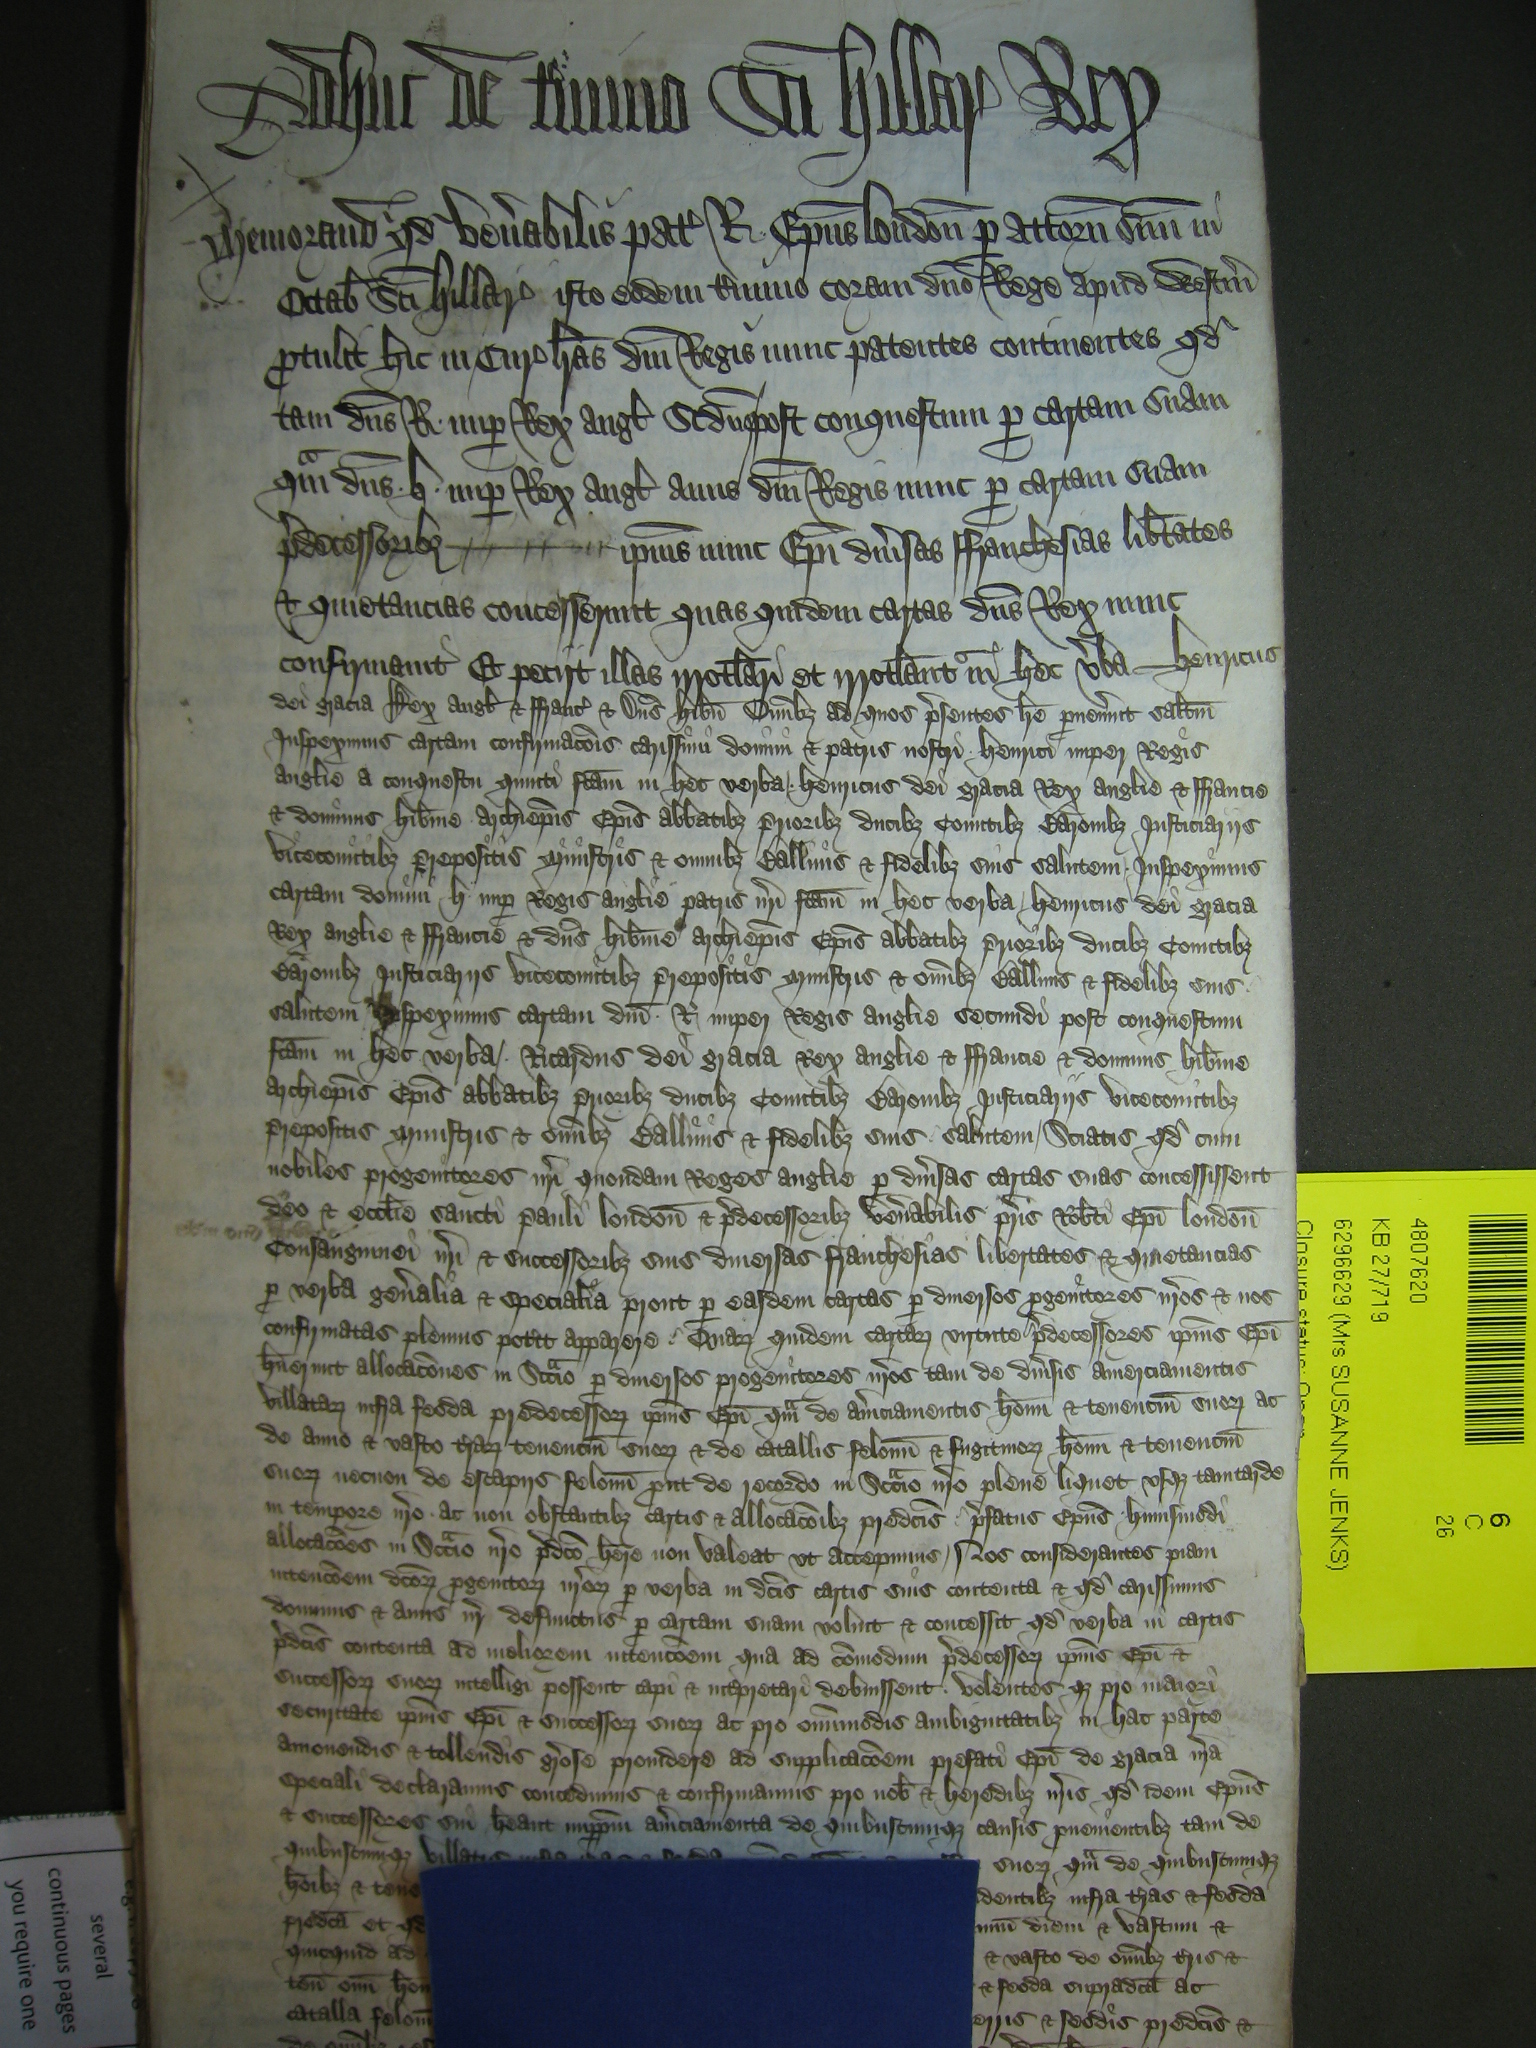 Adhuc de t'mino Sc̄i Hillar' Rex
Memorand' qd' ven'abilis pat' R. Ep̄us london̄ p attorn̄ suū in
Octab̄ Sc̄i Hillar' isto eodem t'mino coram dn̄o Rege apud Westm̄
p̱tulit hic in Cur' lr̄as dn̄i Regis nunc patentes continentes qd'
tam dn̄s R. nup Rex angl' Scd̄us post conquestum p cartam suam
qᵃm dn̄s H. nup Rex angl' auus dn̄i Regis nunc p cartam suam
p'decessorib3 ip̄ius nunc Ep̄i diu'sas ffranchesias lib'tates
& quietancias concesserunt quas quidem cartas dn̄s Rex nunc
confirmauit Et petijt illas irrotl̄ari et irrotl̄ant' in hec v'ba Henricus
dei gracia Rex angl' & ffranc' & Dn̄s hib̄n Om̄ib3 ad quos p'sentes lr̄e puen'int salt̄m
Inspeximus cartam confirmac̄ois carissimi domini & patris nostri Henrici nuper Regis
anglie a conquestu quinti fc̄am in hec verba Henricus dei gracia Rex anglie & ffrancie
& dominus hib̄nie Archiep̄is Ep̄is abbatib3 Priorib3 ducib3 Comitib3 Baronib3 Justiciarijs
vicecomitib3 Prepositis Ministris & omnib3 Balliuis & fidelib3 suis salutem Inspeximus
cartam domini H. nup Regis anglie patris nr̄i fc̄am in hec verba Henricus dei gracia
Rex anglie & ffrancie & dn̄s hib̄nie archiep̄is Ep̄is abbatib3 Priorib3 ducib3 Comitib3
Baronib3 Justiciarijs vicecomitib3 Prepositis Ministris & om̄ib3 Balliuis & fidelib3 suis
salutem Inspeximus cartam dn̄i R. nuper Regis anglie secundi post conquestum
fc̄am in hec verba Ricardus dei gracia Rex anglie & ffrancie & dominus hib̄nie
Archiep̄is Ep̄is abbatib3 Priorib3 ducib3 Comitib3 Baronib3 Justiciarijs vicecomitib3
Prepositis Ministris & om̄ib3 Balliuis & fidelib3 suis salutem Sciatis qd' cum
nobiles progenitores nr̄i quondam Reges anglie p diu'sas cartas suas concessissent
deo & eccl̄ie sancti Pauli london̄ & p'decessorib3 ven'abilis pr̄is Rob'ti Ep̄i london̄
Consanguinei nr̄i & successorib3 suis diuersas franchesias libertates & quietancias
p verba gen'alia & specialia prout p easdem cartas p diuersos pgenitores nr̄os & nos
confirmatas plenius pot'it apparere Quar3 quidem cartar3 virtute p'decessores ip̄ius Ep̄i
h̄uerunt allocac̄ones in Scc̄io p diuersos progenitores nr̄os tam de diu'sis amerciamentis
villatar3 infra feoda predecessor3 ip̄ius Ep̄i qᵃm de am'ciamentis hōim & tenenciū suor3 ac
de anno & vasto t'rar3 tenenciū suor3 & de catallis felonū & fugitiuor3 hōim & tenenciū
suor3 necnon de escapijs felonū put de recordo in Scc̄io nr̄o plene liquet vsq3 tamtarde
in tempore nr̄o ac non obstantib3 cartis & allocac̄oib3 predc̄is p'fatus Ep̄us huiusmodi
allocac̄ones in Scc̄io nr̄o p'dc̄o h̄ere non valeat vt accepimus Nos considerantes piam
intenc̄oem dc̄or3 pgenitor3 nr̄or3 p verba in dc̄is cartis suis contenta & qd' carissimus
dominus & auus nr̄ defunctus p cartam suam voluit & concessit qd' verba in cartis
p'dc̄is contenta ad meliorem intenc̄oem qua ad cōmodum p'decessor3 ip̄ius Ep̄i &
successor3 suor3 intelligi possent capi & int'pretari debuissent volentes q3 pro maiori
securitate ip̄ius Ep̄i & successor3 suor3 ac pro om̄imodis ambiguitatib3 in hac parte
amouendis & tollendis grōse prouidere ad supplicac̄oem prefati Ep̄i de gracia nr̄a
speciali declarauimus concedimus & confirmauimus pro nob̄ & heredib3 nr̄is qd' idem Ep̄us
& successores sui h̄eant imppm̄ am'ciamenta de quibuscumq3 causis puenientib3 tam de
quibuscumq3 villatis infra suor3 qᵃm de quibuscumq3
hōib3 & tene identib3 infra t'ras & feoda
predc̄a et qd' annū diem & vastum &
quicquid ad & vasto de om̄ib3 t'ris &
ten̄ om̄i hōim & feoda supradc̄a ac
catalla felonū terris & feodis predc̄is &
4807620
KB 27/719
6296629 (Mrs SUSANNE JENKS)
Closure status: Open
6
C
26
several
continuous pages
you require one